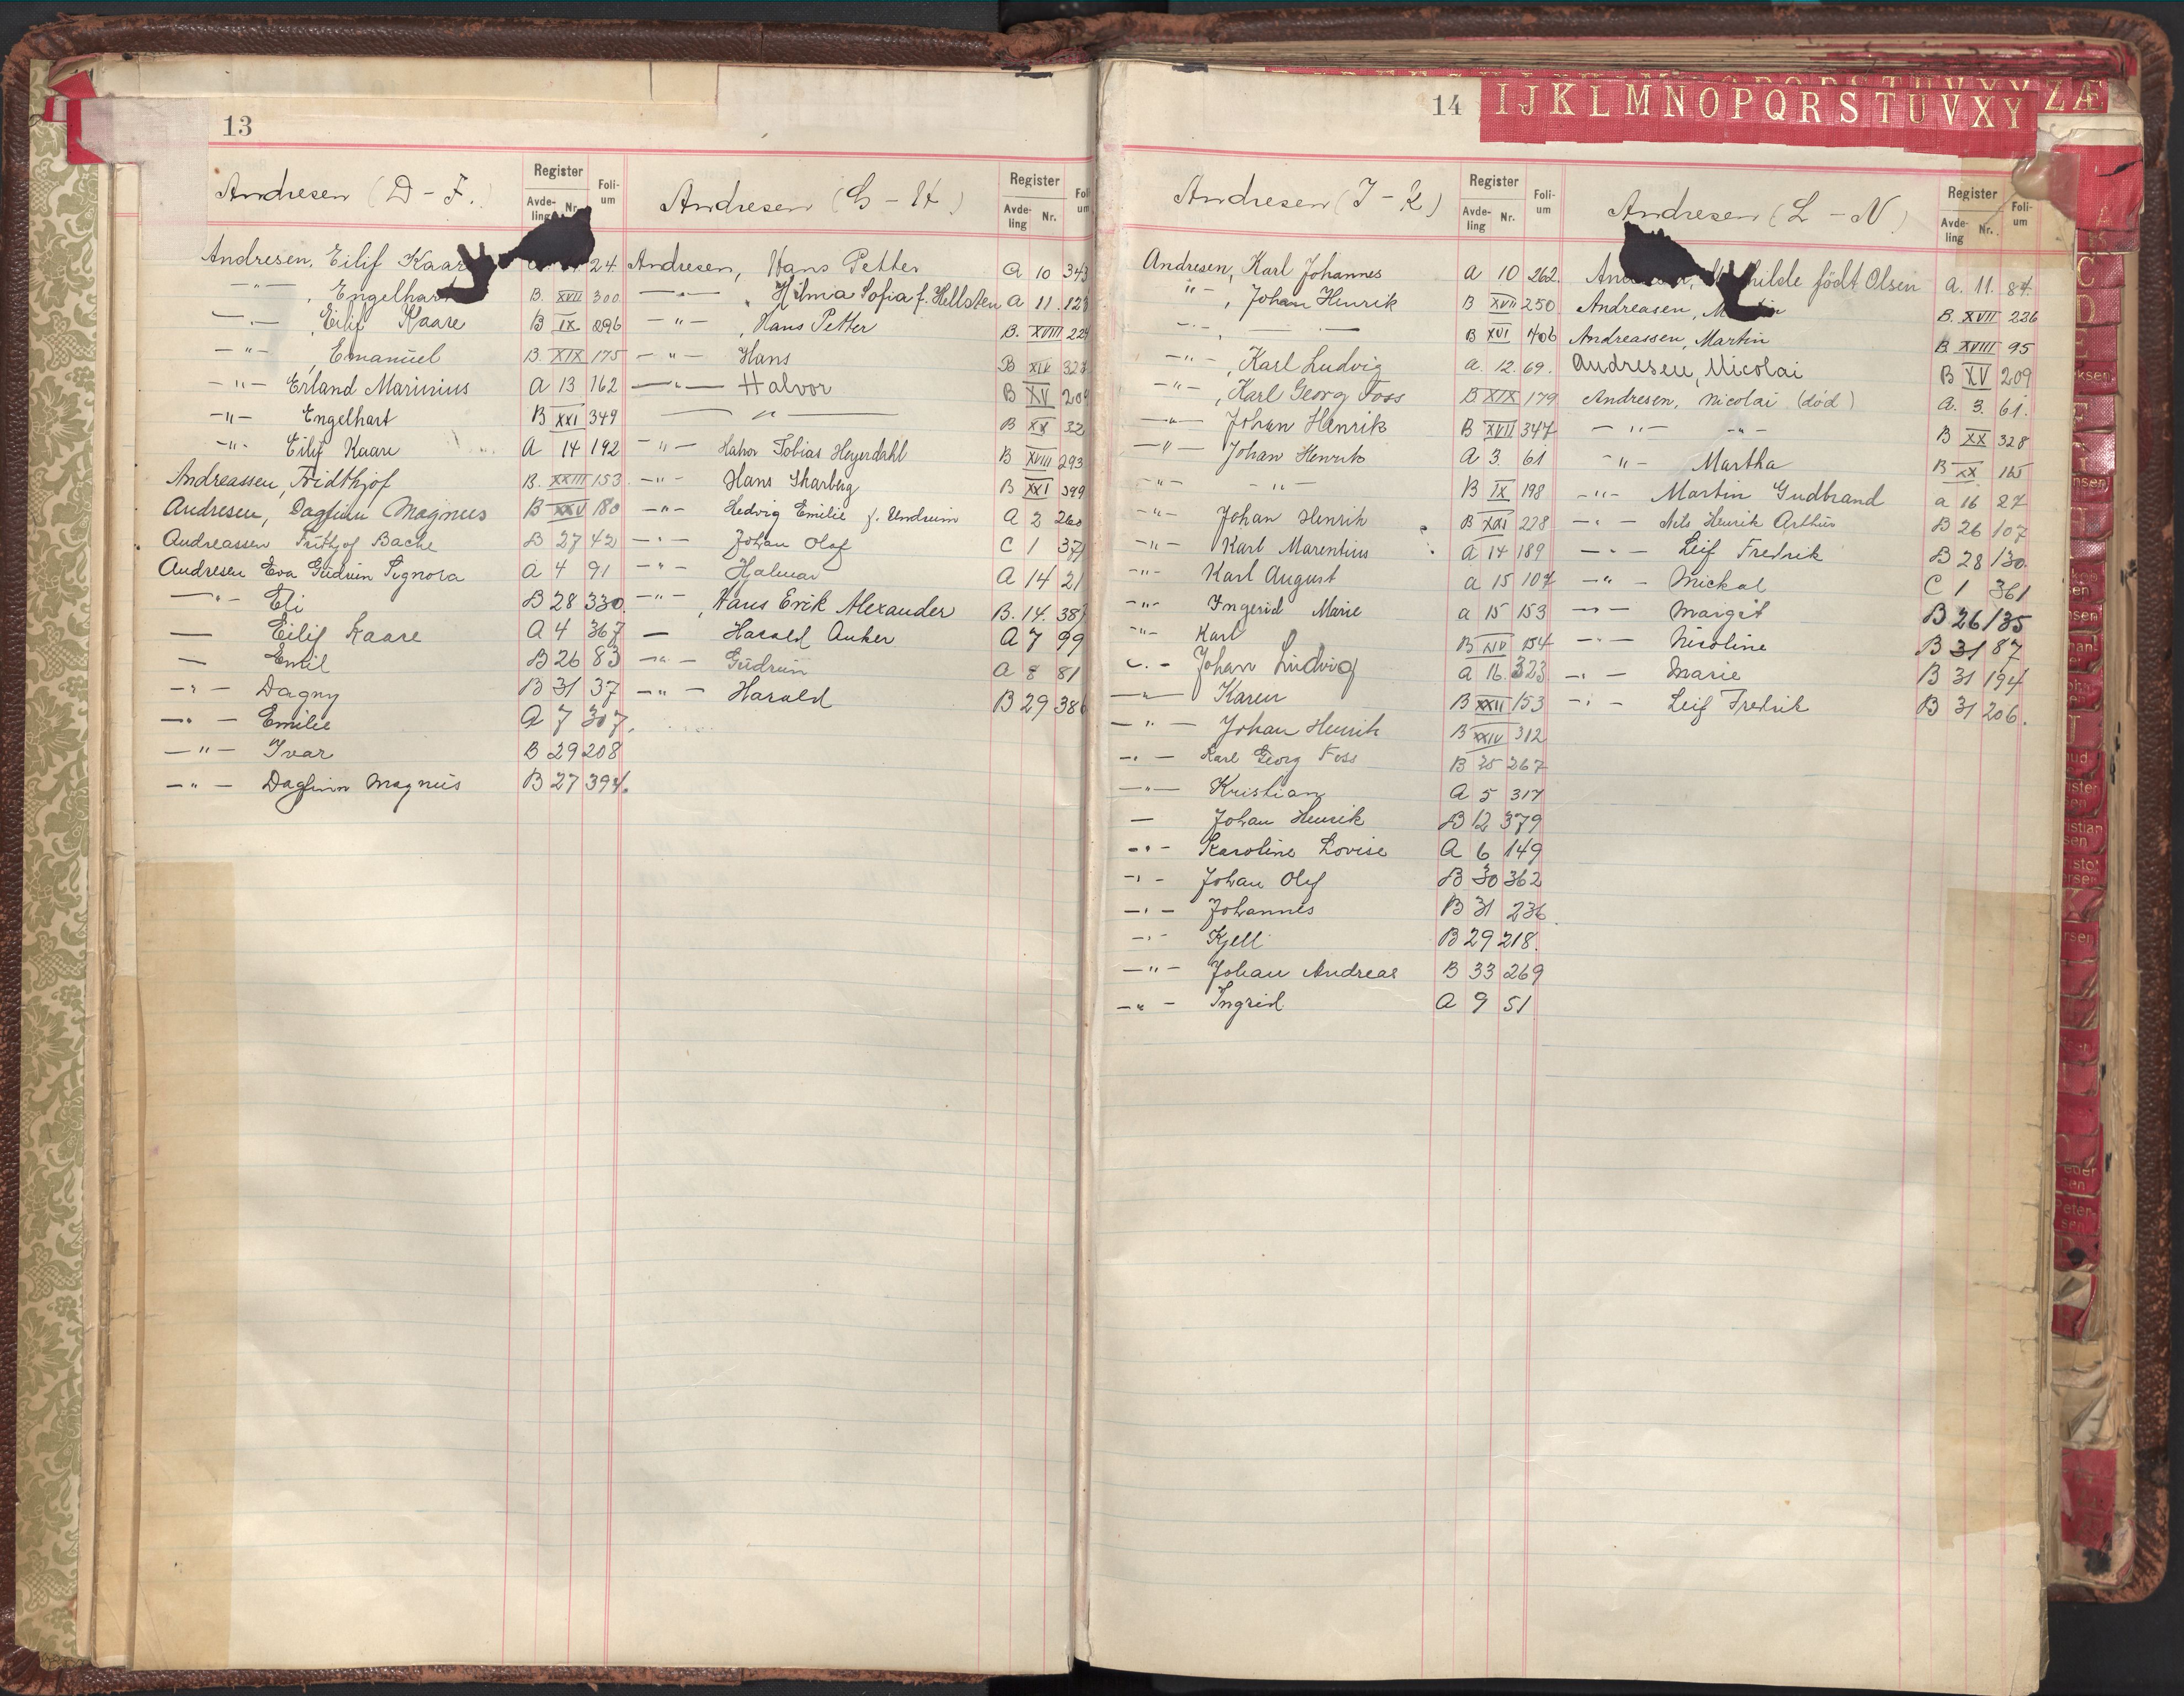 13
Andresen (D - F.)
Register
Avde-ling Nr. Foli-um
Andresen, Eilif Kaare 24
-"- , Engelhart B. XVII 300
-"- , Eilif Kaare B IX 296
-"- , Emanuel B. XIX 175
-"- Erland Marinius A 13 162
-"- Engelhart B XXI 349
-"- Eilif Kaare A 14 192
Andreassen, Fridthjof B. XXIII 153
Andresen, Dagfinn Magnus B XXV 180
Andreassen Fritjof Bache B 27 42
Andresen Eva Gudrun Signora A 4 91
-"- Eli B 28 330.
— Eilif Kaare A 4 367
— Emil B 26 83
-"- Dagny B 31 37
-"- Emilie A 7 307.
-"- Ivar B 29 208
-"- Dagfinn Magnus B 27 394.
Andresen (G - H)
Register
Avde-ling Nr. Foli-um
Andresen, Hans Petter A 10 343
-"- , Hilma Sofia f. Hellsten A 11. 123
-"- , Hans Petter B. XVIII 224
-"- Hans B XIV 328
-"- Halvor B XV 209
-"- B XX 32
-"- Halvor Tobias Heyerdahl B XVIII 293
-"- Hans Skarberg B XXI 399
-"- Hedvig Emilie f. Undrum A 2 260
-"- Johan Olaf C 1 37
-"- Halvar A 14 21
-"- , Hans Erik Alexander B. 14. 38
— Harald Anker A 7 99
-"- Gudrun A 8 81
-"- Harald B 29 386
14
I J K L M N O P Q R S T U V X Y Z Æ
Andresen (I - K)
Register
Avde-ling Nr. Foli-um
Andresen, Karl Johannes A 10 262.
-"- , Johan Henrik B XVII 250
-"- , — — B XVI 406
-"- , Karl Ludvig A. 12. 69.
-"- , Karl Georg Foss B XIX 179
-"- Johan Henrik B XVII 347
-"- Johan Henrik A 3. 61
-"- -"- B IX 198
-"- Johan Henrik B XXI 228
-"- Karl Marentius A 14 189
-"- Karl August A 15 107
-"- Ingerid Marie A 15 153
-"- Karl B XIV 154
-"- Johan Ludvig A 16. 323
-"- Karen B XXII 153
-"- Johan Henrik B XXIV 312
-"- Karl Georg Foss B 25 267
-"- Kristian A 5 317
— Johan Henrik B 12 379
-"- Karoline Lovise A 6 149
-"- Johan Olaf B 30 362
-"- Johannes B 31 236.
-"- Kjell B 29 218.
-"- Johan Andreas B 33 269
-"- Ingrid A 9 51
Andresen (L - N)
Register
Avde-ling Nr. Foli-um
hilde født Olsen A. 11. 84.
Andreasen, Martin B. XVII 226
Andreassen, Martin B. XVIII 95
Andresen, Nicolai B XV 209
Andresen, Nicolai (død) A. 3. 61.
-"- -"- B XX 328
-"- Martha B XX 165
-"- Martin Gudbrand A 16 27
-"- Nils Henrik Arthur B 26 107
-"- Leif Fredrik B 28 130.
-"- Mickal C 1 361
-"- Margit B 26 135
-"- Nicoline B 31 87
-"- Marie B 31 194
-"- Leif Fredrik B 31 206.